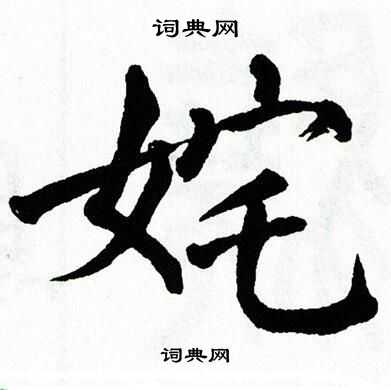 词典网
姹
词典网